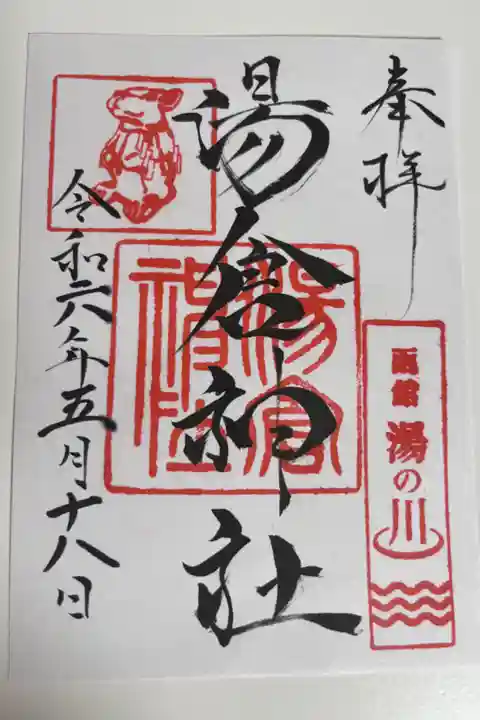 奉拝
函館
湯の川
湯倉神社
湯倉
神社
令和六年五月十八日